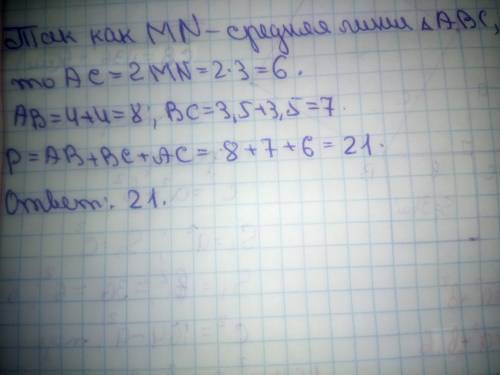 Так как MN - средняя линия △ ABC,
то AC = 2MN = 2·3 = 6.
AB = 4+4 = 8; BC = 3,5+3,5 = 7.
P = AB + BC + AC = 8 + 7 + 6 = 21.
Ответ: 21.